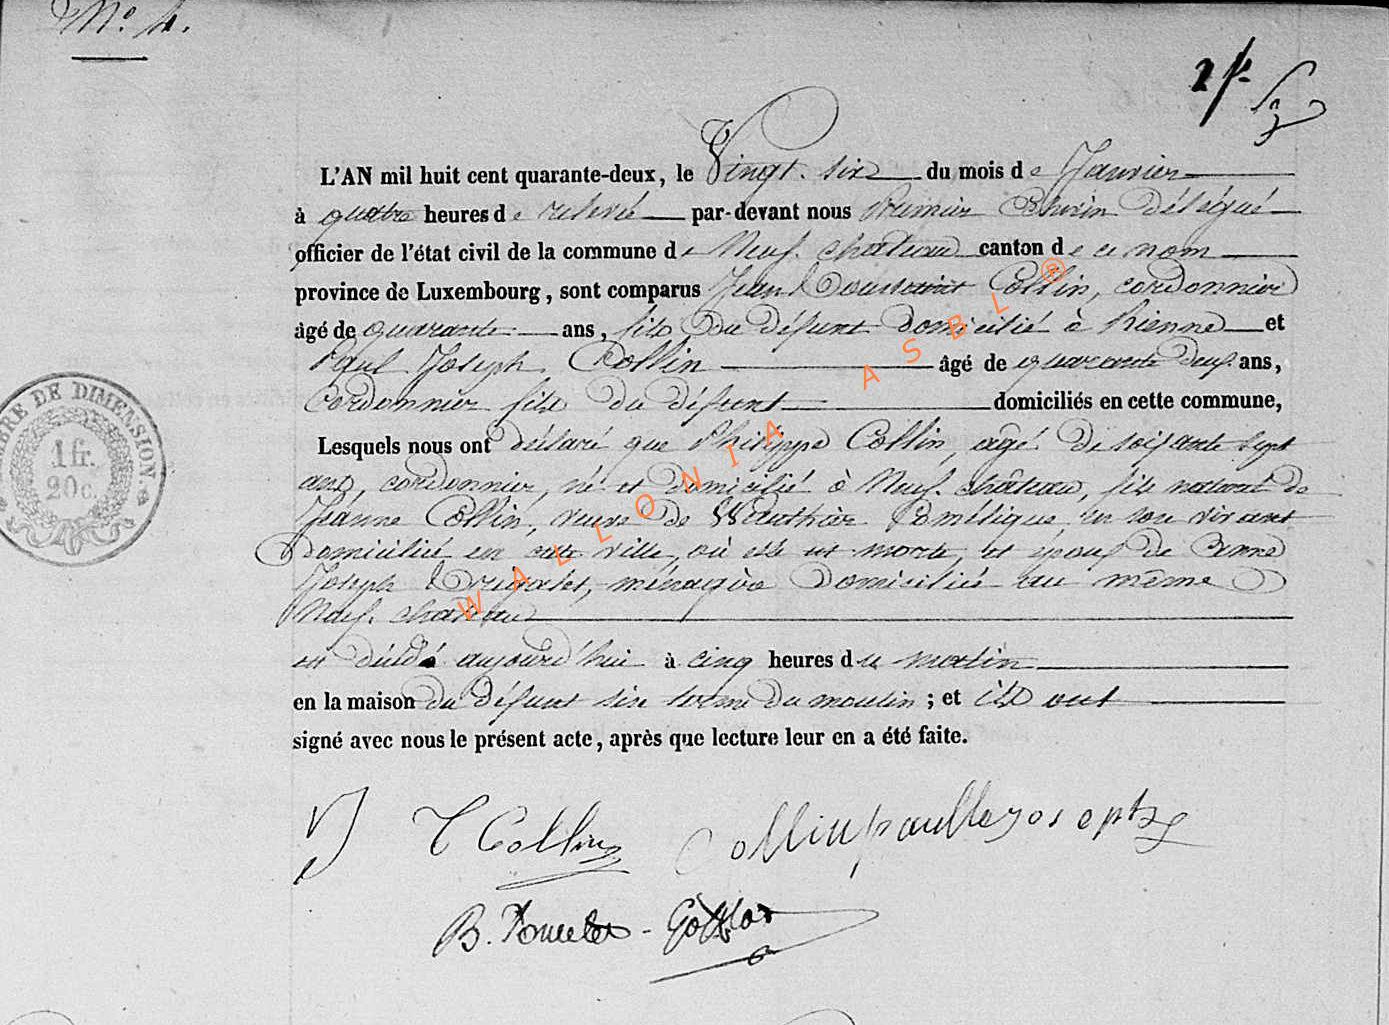 N.º 4.
L'AN mil huit cent quarante-deux, le Vingt-six du mois de Janvier
à quatre heures de relevé par-devant nous Premier Echevin délégué
officier de l'état civil de la commune de Neuf-château canton de ce nom
province de Luxembourg, sont comparus Jean Toussaint Collin, cordonnier
âgé de quarante ans, fils du défunt domicilié à Rienne et
Paul Joseph Collin âgé de quarante deux ans,
Cordonnier fils du défunt domiciliés en cette commune,
Lesquels nous ont déclaré que Philippe Collin, agé de soixante sept
ans, cordonnier, né et domicilié à Neuf-château, fils naturel de
Jeanne Collin, veuve de Wauthier Domestique, en son vivant
Domiciliée en cette ville, où elle est morte, et époux de Anne
Joseph ménagère domiciliée au même
Neuf-château
est décédé aujourd'hui à cinq heures du matin
en la maison du défunt sise terme du moulin ; et ils ont
signé avec nous le présent acte, après que lecture leur en a été faite.
T Collin Collin paulle joseph
B. Poncelet - Gollot
TIMBRE DE DIMENSION.
1 fr.
20 c.
WALLONIA ASBL ®